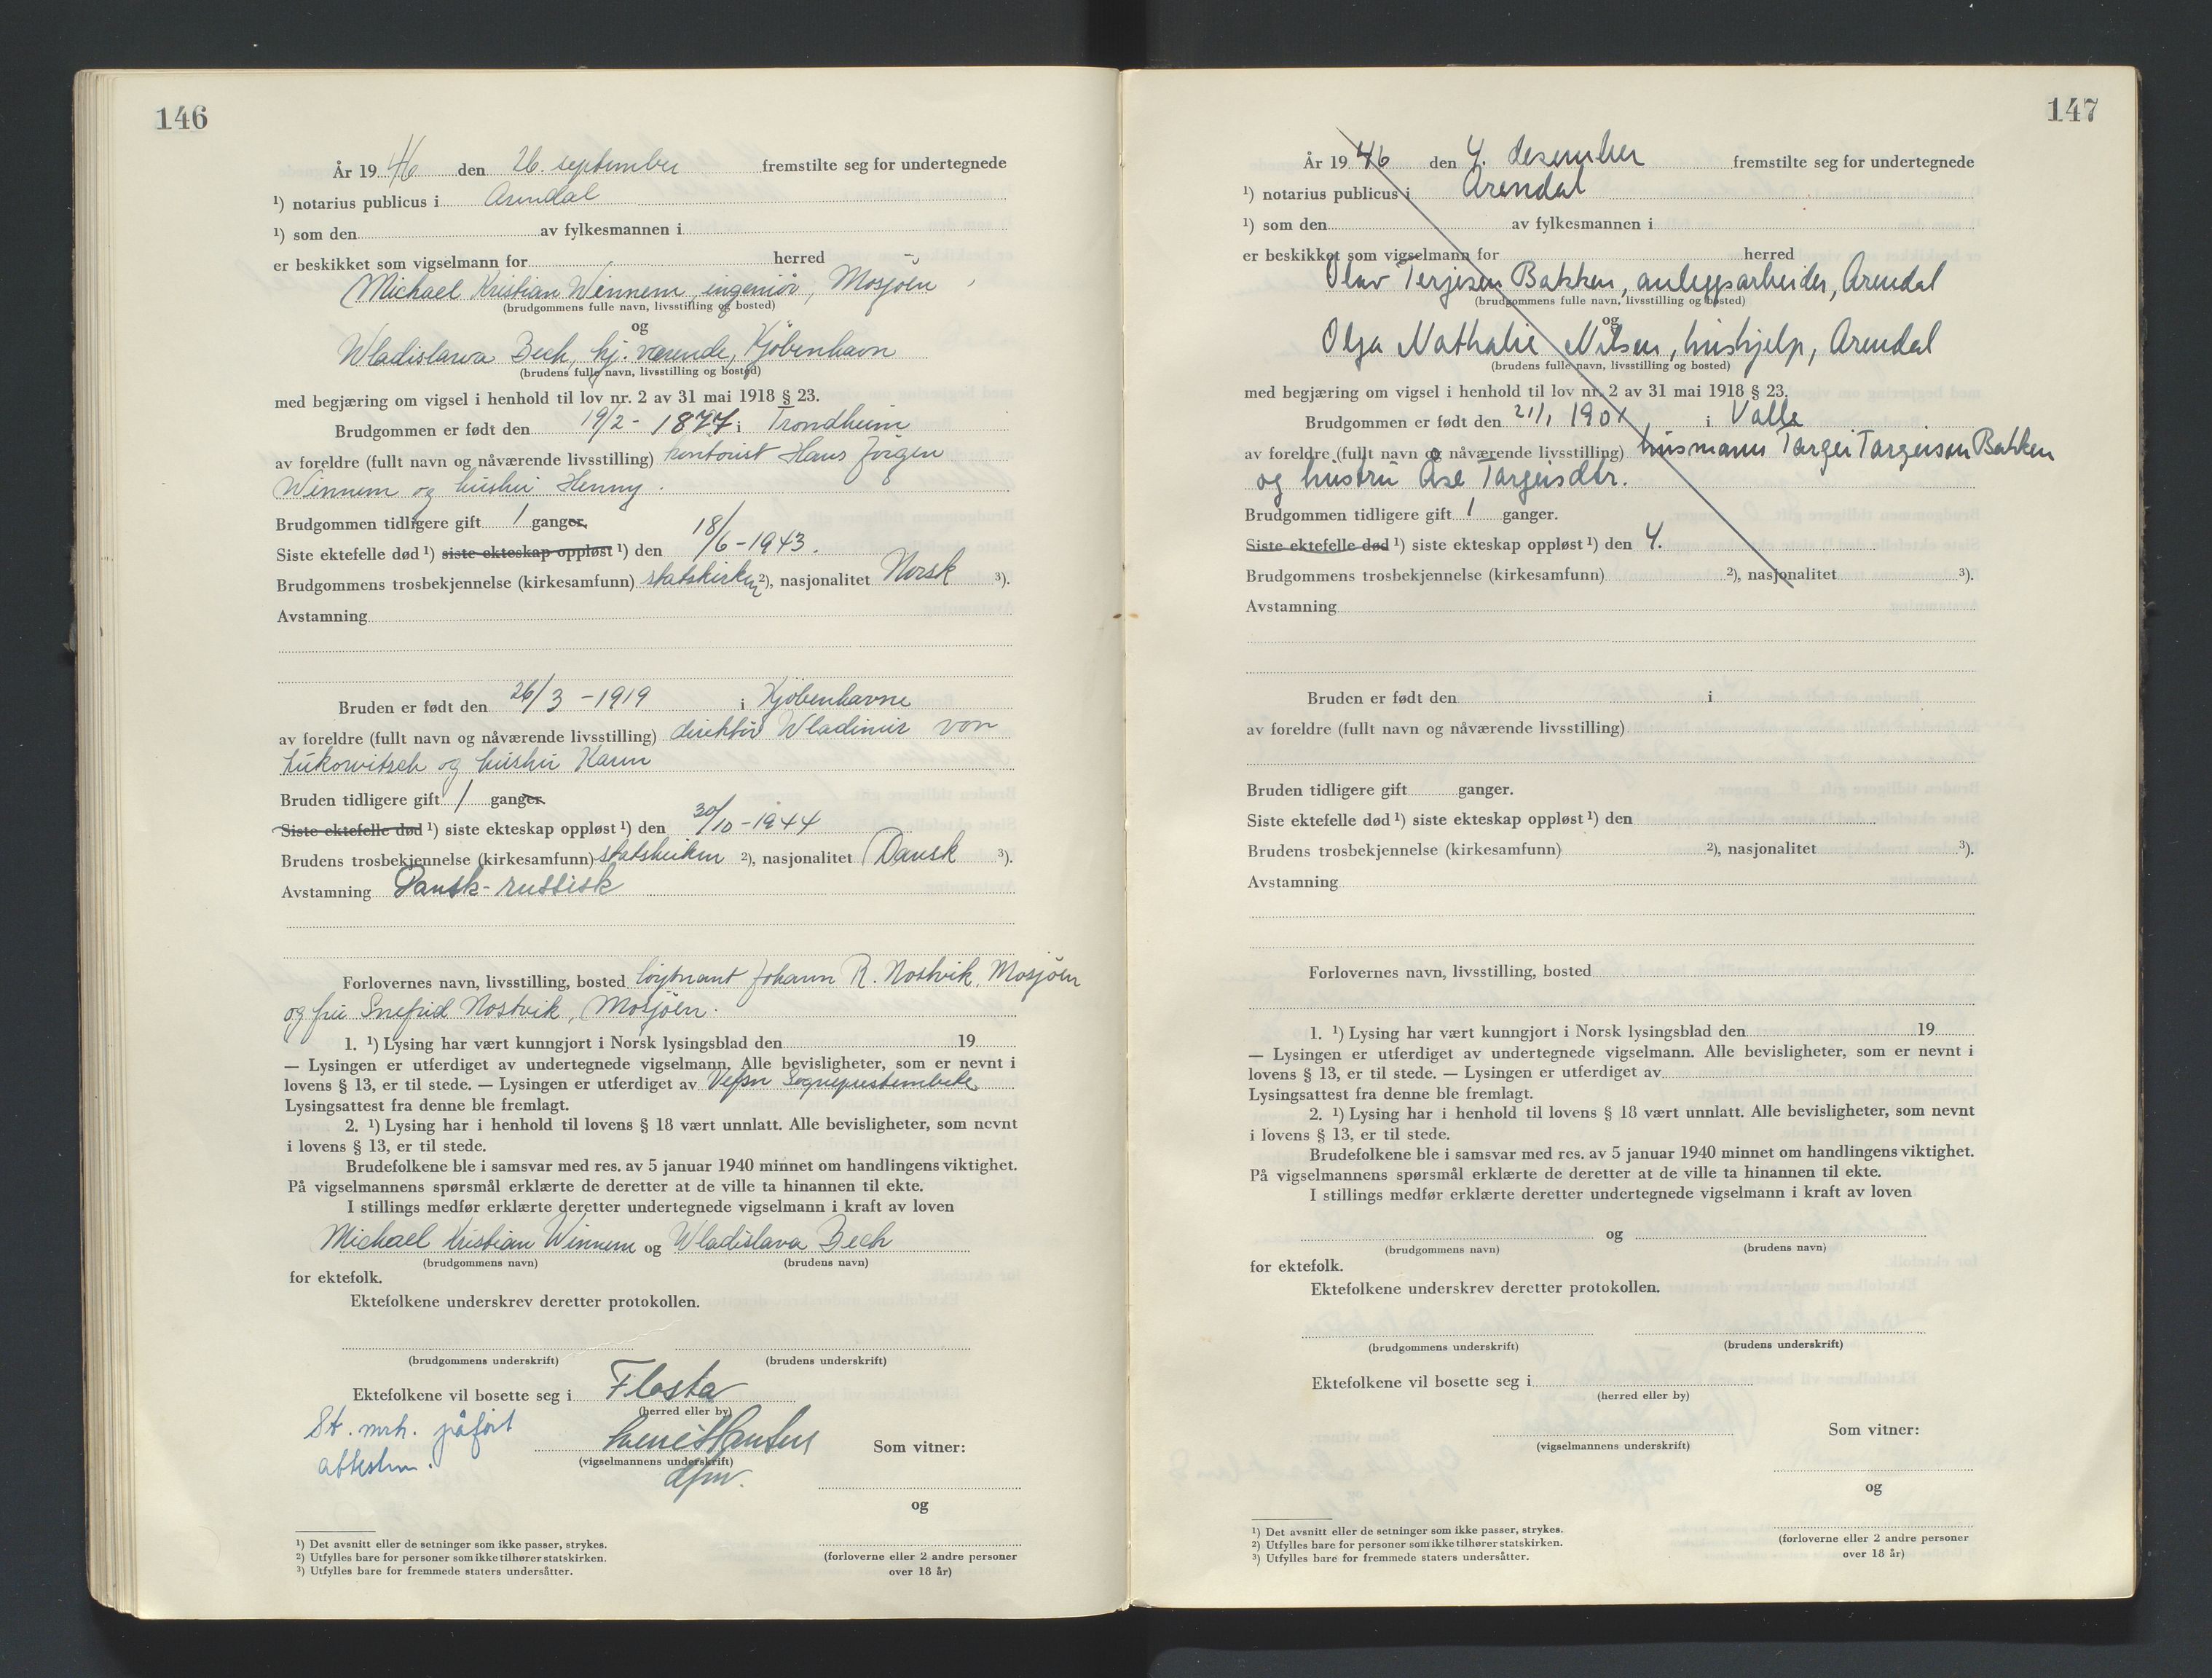 146
År 19 46 den 26. september fremstilte seg for undertegnede
¹) notarius publicus i Arendal
¹) som den av fylkesmannen i
er beskikket som vigselmann for herred
Michael Kristian Winnem, ingeniör, Mosjöen
(brudgommens fulle navn, livsstilling og bosted)
og
Wladislawa Bech, hj. værende, Kjöbenhavn
(brudens fulle navn, livsstilling og bosted)
med begjæring om vigsel i henhold til lov nr. 2 av 31 mai 1918 § 23.
Brudgommen er født den 19/2 - 1877 i Trondheim
av foreldre (fullt navn og nåværende livsstilling) kontorist Hans Jörgen
Winnem og hustru Henny.
Brudgommen tidligere gift 1 ganger.
Siste ektefelle død ¹) siste ekteskap oppløst ¹) den 18/6 - 1943.
Brudgommens trosbekjennelse (kirkesamfunn) statskirken ²), nasjonalitet Norsk ³).
Avstamning
Bruden er født den 26/3 - 1919 i Kjöbenhavn
av foreldre (fullt navn og nåværende livsstilling) direktör Wladimir von
Lukowitsch og hustru Karen
Bruden tidligere gift 1 ganger.
Siste ektefelle død ¹) siste ekteskap oppløst ¹) den 30/10 - 1944
Brudens trosbekjennelse (kirkesamfunn) statskirken ²), nasjonalitet Dansk ³).
Avstamning Dansk-russisk
Forlovernes navn, livsstilling, bosted löytnant Johann R. Nostvik, Mosjöen
og fru Snefrid Nostvik, Mosjöen.
1. ¹) Lysing har vært kunngjort i Norsk lysingsblad den 19
— Lysingen er utferdiget av undertegnede vigselmann. Alle bevisligheter, som er nevnt i
lovens § 13, er til stede. — Lysingen er utferdiget av Vefsn Sogneprestembete
Lysingsattest fra denne ble fremlagt.
2. ¹) Lysing har i henhold til lovens § 18 vært unnlatt. Alle bevisligheter, som nevnt
i lovens § 13, er til stede.
Brudefolkene ble i samsvar med res. av 5 januar 1940 minnet om handlingens viktighet.
På vigselmannens spørsmål erklærte de deretter at de ville ta hinannen til ekte.
I stillings medfør erklærte deretter undertegnede vigselmann i kraft av loven
Michael Kristian Winnem og Wladislava Bech
(brudgommens navn) (brudens navn)
for ektefolk.
Ektefolkene underskrev deretter protokollen.
(brudgommens underskrift) (brudens underskrift)
Ektefolkene vil bosette seg i Flosta
(herred eller by)
St. mrk. påfört
attesten.
Hansen
(vigselmannens underskrift)
Som vitner:
og
(forloverne eller 2 andre personer
over 18 år)
¹) Det avsnitt eller de setninger som ikke passer, strykes.
²) Utfylles bare for personer som ikke tilhører statskirken.
³) Utfylles bare for fremmede staters undersåtter.
147
År 19 46 den 4. desember fremstilte seg for undertegnede
¹) notarius publicus i Arendal
¹) som den av fylkesmannen i
er beskikket som vigselmann for herred
Olav Terjesen Bakken, anleggsarbeider, Arendal
(brudgommens fulle navn, livsstilling og bosted)
og
Olga Nathalie Nilsen, hushjelp, Arendal
(brudens fulle navn, livsstilling og bosted)
med begjæring om vigsel i henhold til lov nr. 2 av 31 mai 1918 § 23.
Brudgommen er født den 21/1 1901 i Valle
av foreldre (fullt navn og nåværende livsstilling) husmann Targei Targeison Bakken
og hustru Åse Targeisdtr.
Brudgommen tidligere gift 1 ganger.
Siste ektefelle død ¹) siste ekteskap oppløst ¹) den 4.
Brudgommens trosbekjennelse (kirkesamfunn) ²), nasjonalitet ³).
Avstamning
Bruden er født den i
av foreldre (fullt navn og nåværende livsstilling)
Bruden tidligere gift ganger.
Siste ektefelle død ¹) siste ekteskap oppløst ¹) den
Brudens trosbekjennelse (kirkesamfunn) ²), nasjonalitet ³).
Avstamning
Forlovernes navn, livsstilling, bosted
1. ¹) Lysing har vært kunngjort i Norsk lysingsblad den 19
— Lysingen er utferdiget av undertegnede vigselmann. Alle bevisligheter, som er nevnt i
lovens § 13, er til stede. — Lysingen er utferdiget av
Lysingsattest fra denne ble fremlagt.
2. ¹) Lysing har i henhold til lovens § 18 vært unnlatt. Alle bevisligheter, som nevnt
i lovens § 13, er til stede.
Brudefolkene ble i samsvar med res. av 5 januar 1940 minnet om handlingens viktighet.
På vigselmannens spørsmål erklærte de deretter at de ville ta hinannen til ekte.
I stillings medfør erklærte deretter undertegnede vigselmann i kraft av loven
og
(brudgommens navn) (brudens navn)
for ektefolk.
Ektefolkene underskrev deretter protokollen.
(brudgommens underskrift) (brudens underskrift)
Ektefolkene vil bosette seg i
(herred eller by)
(vigselmannens underskrift)
Som vitner:
og
(forloverne eller 2 andre personer
over 18 år)
¹) Det avsnitt eller de setninger som ikke passer, strykes.
²) Utfylles bare for personer som ikke tilhører statskirken.
³) Utfylles bare for fremmede staters undersåtter.